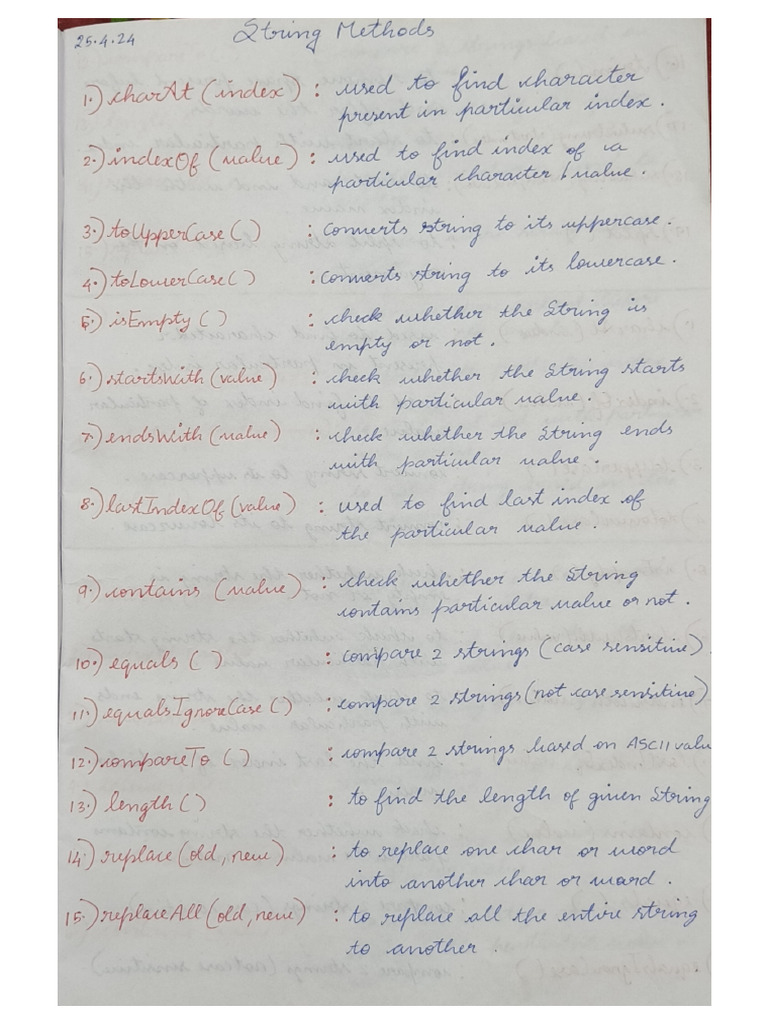 25.4.24
String Methods
1.) charAt (index) : used to find character
present in particular index.
2.) indexOf (value) : used to find index of a
particular character / value.
3.) toUpperCase ( ) : converts string to its uppercase.
4.) toLowerCase ( ) : converts string to its lowercase.
5.) isEmpty ( ) : check whether the String is
empty or not.
6.) startsWith (value) : check whether the String starts
with particular value.
7.) endsWith (value) : check whether the String ends
with particular value.
8.) lastIndexOf (value) : used to find last index of
the particular value.
9.) contains (value) : check whether the String
contains particular value or not.
10.) equals ( ) : compare 2 strings (case sensitive).
11.) equalsIgnoreCase ( ) : compare 2 strings (not case sensitive)
12.) compareTo ( ) : compare 2 strings based on ASCII valu
13.) length ( ) : to find the length of given String
14.) replace (old, new) : to replace one char or word
into another char or word.
15.) replaceAll (old, new) : to replace all the entire string
to another.